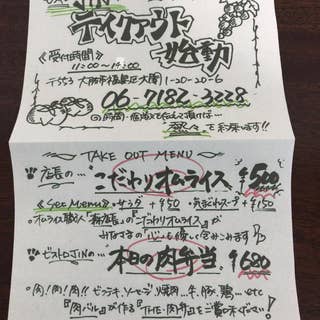 JIN
テイクアウト
始動
《受付時間》
11:00～14:00
〒553 大阪市福島区大開1-20-20-6
06-7182-3228
※時間・個数を
を お約束します!!
TAKE OUT MENU
店長の… こだわりオムライス ¥500
《Set Menu》・サラダ +¥50 ・気まぐれスープ +¥150
オムライス職人 の『こだわりオムライス』が
みなさまの『心』も優しく包みこみます
ビストロJINの… 本日の肉弁当 ¥680
肉!肉!肉!! ビフテキ、ソーセージ、焼肉…牛、豚、鶏… etc
『肉バル』が作る『THE・肉弁当』をご賞味下さい!